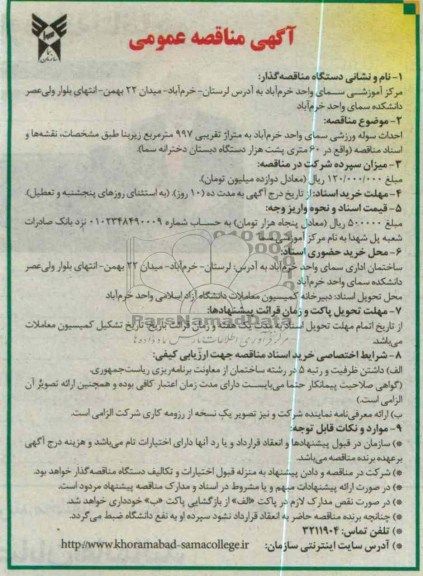 آگهی مناقصه عمومی
۱- نام و نشانی دستگاه مناقصه‌گذار:
مرکز آموزشی سمای واحد خرم‌آباد به آدرس لرستان- خرم‌آباد- میدان ۲۲ بهمن- انتهای بلوار ولی‌عصر
دانشکده سمای واحد خرم‌آباد
۲-موضوع مناقصه:
احداث سوله ورزشی سمای واحد خرم‌آباد به متراژ تقریبی ۹۹۷ مترمربع زیربنا طبق مشخصات، نقشه‌ها و
اسناد مناقصه (واقع در ۶۰ متری پشت هزار دستگاه دبستان دخترانه سما).
۳- میزان سپرده شرکت در مناقصه:
مبلغ ۱۲۰/۰۰۰/۰۰۰ ریال (معادل دوازده میلیون تومان).
۴- مهلت خرید اسناد: از تاریخ درج آگهی به مدت ده (۱۰ روز). (به استثنای روزهای پنجشنبه و تعطیل).
۵- قیمت اسناد و نحوه واریز وجه:
مبلغ ۵۰۰۰۰۰ ریال (معادل پنجاه هزار تومان) به حساب شماره ۰۱۰۲۳۴۸۴۹۰۰۰۹ نزد بانک صادرات
شعبه پل شهدا به نام مرکز آموزشی
۶- محل خرید حضوری اسناد:
ساختمان اداری سمای واحد خرم‌آباد به آدرس: لرستان- خرم‌آباد- میدان ۲۲ بهمن- انتهای بلوار ولی‌عصر
دانشکده سمای واحد خرم‌آباد
محل تحویل اسناد: دبیرخانه کمیسیون معاملات دانشگاه آزاد اسلامی واحد خرم‌آباد
۷- مهلت تحویل پاکت و زمان قرائت پیشنهادها:
از تاریخ اتمام مهلت تحویل اسناد زمان قرائت تاریخ تشکیل کمیسیون معاملات
می‌باشد.
۸- شرایط اختصاصی خرید اسناد مناقصه جهت ارزیابی کیفی:
الف) داشتن ظرفیت و رتبه ۵ در رشته ساختمان از معاونت برنامه‌ریزی ریاست‌جمهوری.
(گواهی صلاحیت پیمانکار حتما می‌بایست دارای مدت زمان اعتبار کافی بوده و همچنین ارائه تصویر آن
الزامی است.)
ب) ارائه معرفی‌نامه نماینده شرکت و نیز تصویر یک نسخه از رزومه کاری شرکت الزامی است.
۹- موارد و نکات قابل توجه:
*) سازمان در قبول پیشنهادها و انعقاد قرارداد و یا رد آنها دارای اختیارات تام می‌باشد و هزینه درج آگهی
برعهده برنده مناقصه می‌باشد.
*) شرکت در مناقصه و دادن پیشنهاد به منزله قبول اختیارات و تکالیف دستگاه مناقصه‌گذار خواهد بود.
*) در صورت ارائه پیشنهادات مبهم و یا مشروط در اسناد و مدارک مناقصه پیشنهاد مردود است.
*) در صورت نقص مدارک لازم در پاکت «الف» از بازگشایی پاکت «ب» خودداری خواهد شد.
*) چنانچه برنده مناقصه حاضر به انعقاد قرارداد نشود سپرده او به نفع دانشگاه ضبط می‌گردد.
*) تلفن تماس: ۳۲۱۱۹۰۴
*) آدرس سایت اینترنتی سازمان: http//www.khoramabad-samacollege.ir